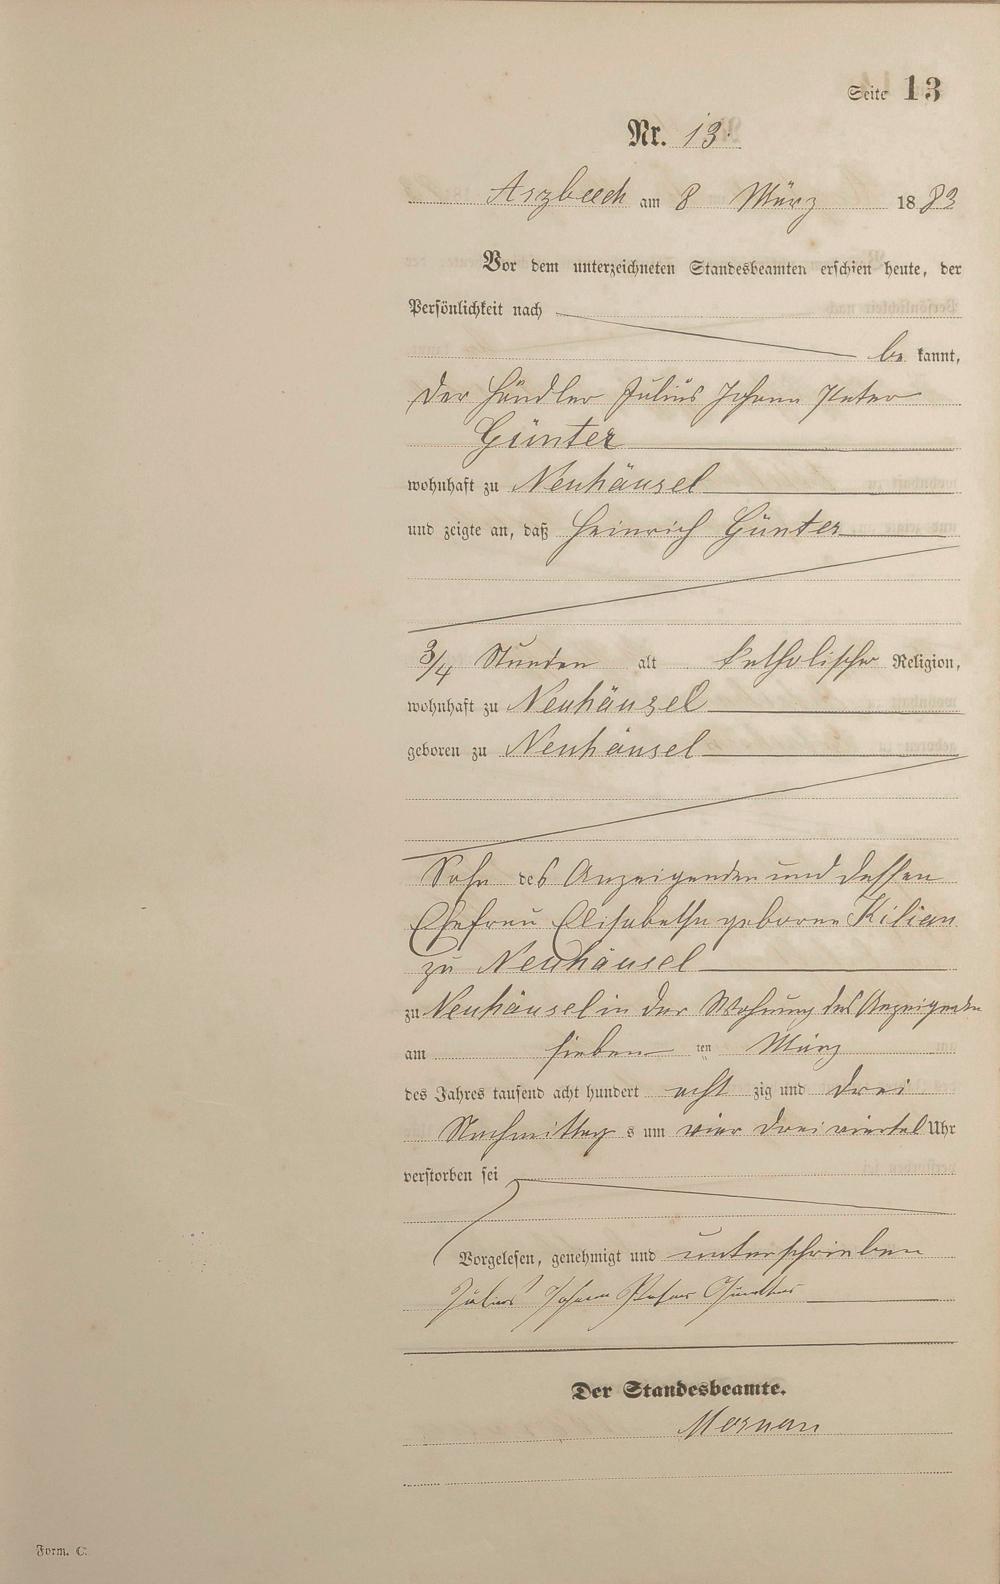 Seite 13
Nr. 13.
Arzbach am 8 März 1883
Vor dem unterzeichneten Standesbeamten erschien heute, der
Persönlichkeit nach
be kannt,
der Händler Julius Johann Peter
Günter
wohnhaft zu Neuhäusel
und zeigte an, daß Heinrich Günter
3/4 Stunden alt katholischer Religion,
wohnhaft zu Neuhäusel
geboren zu Neuhäusel
Sohn des Anzeigenden und dessen
Ehefrau Elisabetha geborne Kilian
zu Neuhäusel
zu Neuhäusel in der Wohnung des Anzeigenden
am sieben ten März
des Jahres tausend acht hundert acht zig und drei
Nachmittag s um vier drei viertel Uhr
verstorben sei
Vorgelesen, genehmigt und unterschrieben
Julius Johann Peter Günter
Der Standesbeamte.
Form. C.